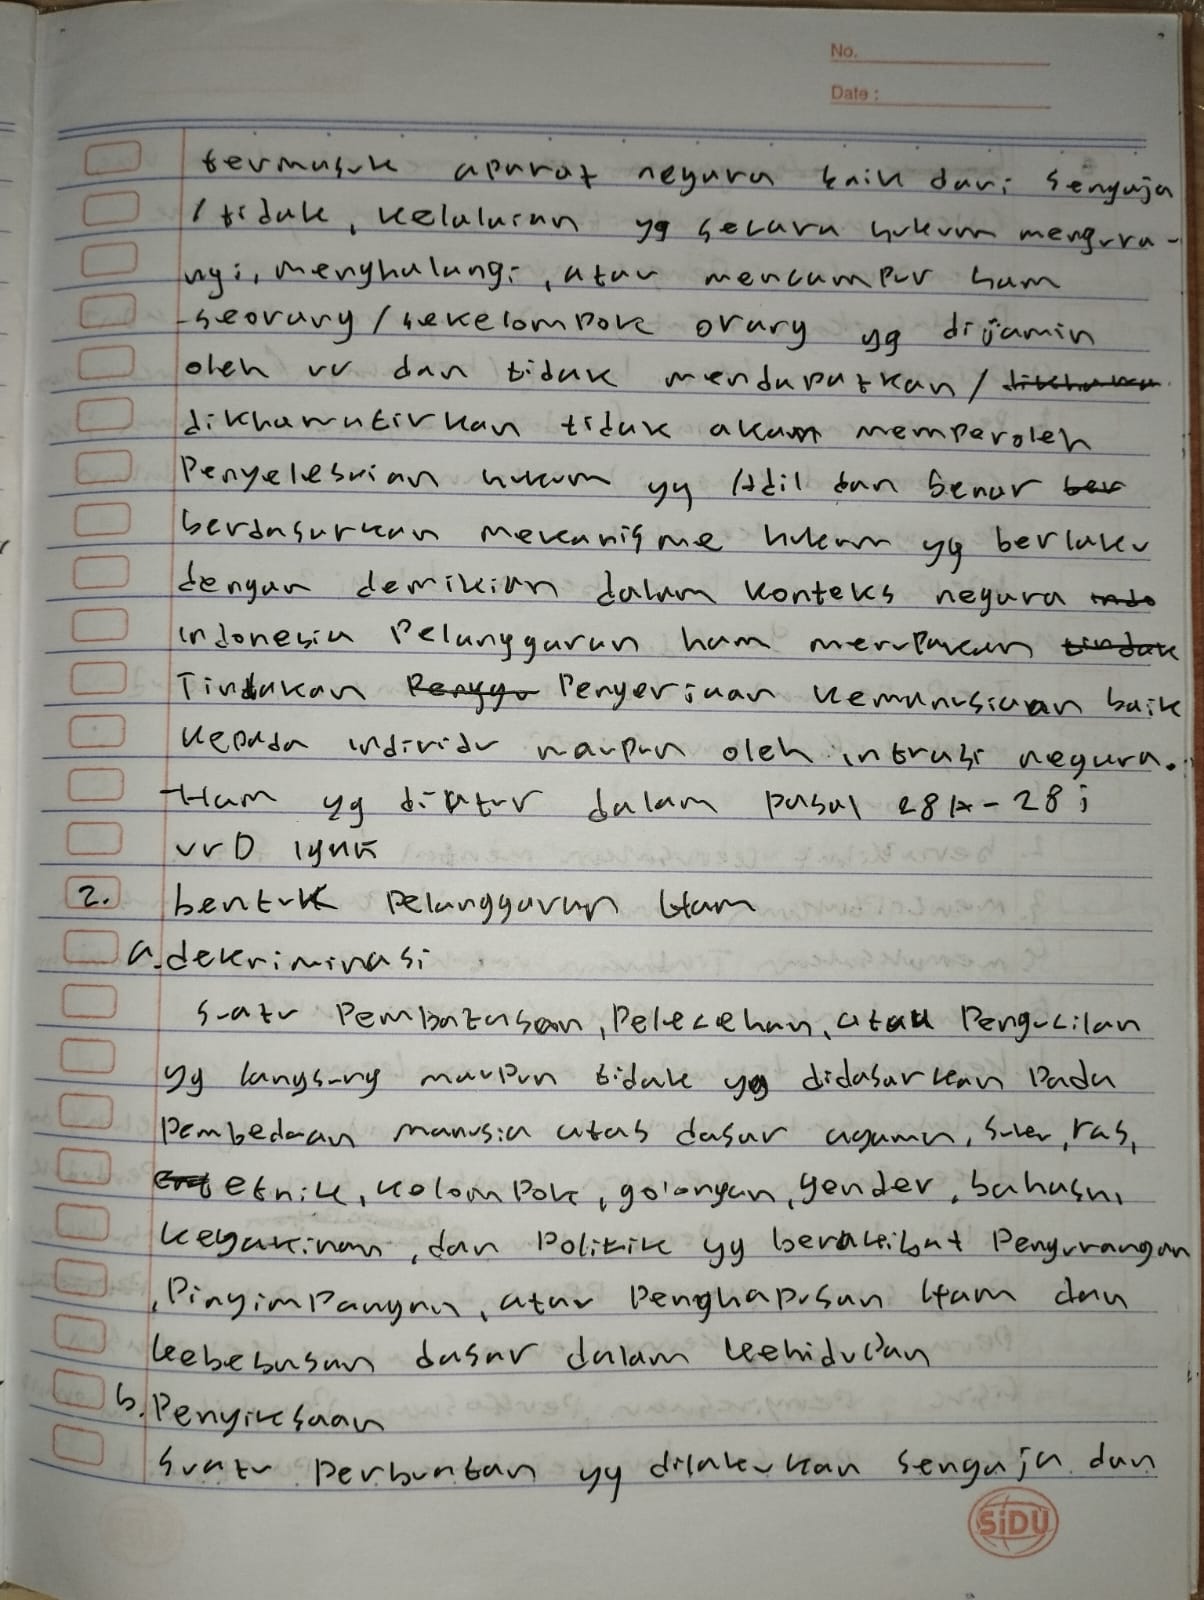 No.
Date :
termasuk aparat negara baik dari sengaja
/ tidak, kelalaian yg secara hukum mengura-
ngi, menghalangi, atau mencampur ham
seorang / sekelompok orang yg dijamin
oleh uu dan tidak mendapatkan /
dikhawatirkan tidak akan memperoleh
Penyelesaian hukum yg Adil dan benar ber
berdasarkan mekanisme hukum yg berlaku
dengan demikian dalam konteks negara indo
indonesia Pelanggaran ham merupakan tindak
Tindakan Penggu Penyerjaan kemanusiaan baik
kepada individu maupun oleh intrasi negara.
Ham yg diatur dalam pasal 28A-28i
UUD 1945
2. bentuk Pelanggaran Ham
a. dekriminasi
suatu Pembatasan, Pelecehan, atau Pengucilan
yg langsung maupun tidak yg didasarkan Pada
Pembedaan manusia atas dasar agama, suku, ras,
etnik, kolompok, golongan, gender, bahasa,
keyakinan, dan Politik yg berakibat Pengurangan
, Pinyimpangan, atau Penghapusan Ham dan
kebebasan dasar dalam kehidupan
b. Penyiksaan
suatu Perbuatan yg dilakukan sengaja dan
SiDU